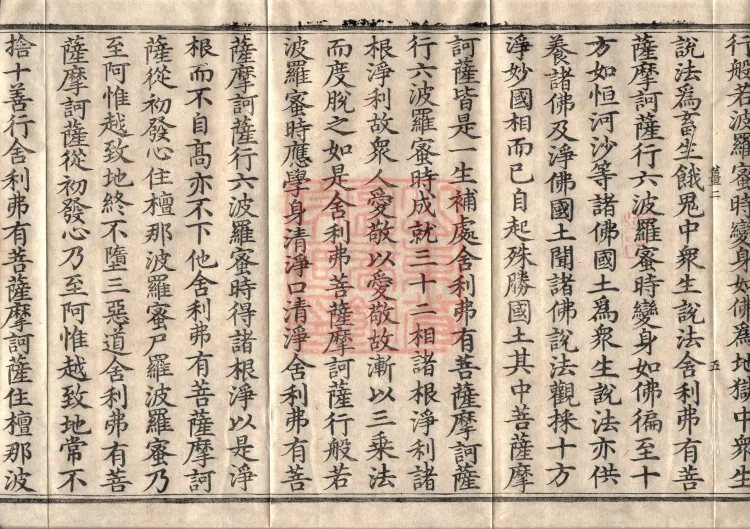 行般若波羅蜜時變身如佛為地獄中衆生
說法為畜生餓鬼中衆生說法舍利弗有菩
薑二
五
薩摩訶薩行六波羅蜜時變身如佛徧至十
方如恒河沙等諸佛國土為衆生說法亦供
養諸佛及淨佛國土聞諸佛說法觀採十方
淨妙國相而已自起殊勝國土其中菩薩摩
訶薩皆是一生補處舍利弗有菩薩摩訶薩
行六波羅蜜時成就三十二相諸根淨利諸
根淨利故衆人愛敬以愛敬故漸以三乘法
而度脫之如是舍利弗菩薩摩訶薩行般若
波羅蜜時應學身清淨口清淨舍利弗有菩
薩摩訶薩行六波羅蜜時得諸根淨以是淨
根而不自高亦不下他舍利弗有菩薩摩訶
薩從初發心住檀那波羅蜜尸羅波羅蜜乃
至阿惟越致地終不墮三惡道舍利弗有菩
薩摩訶薩從初發心乃至阿惟越致地常不
捨十善行舍利弗有菩薩摩訶薩住檀那波